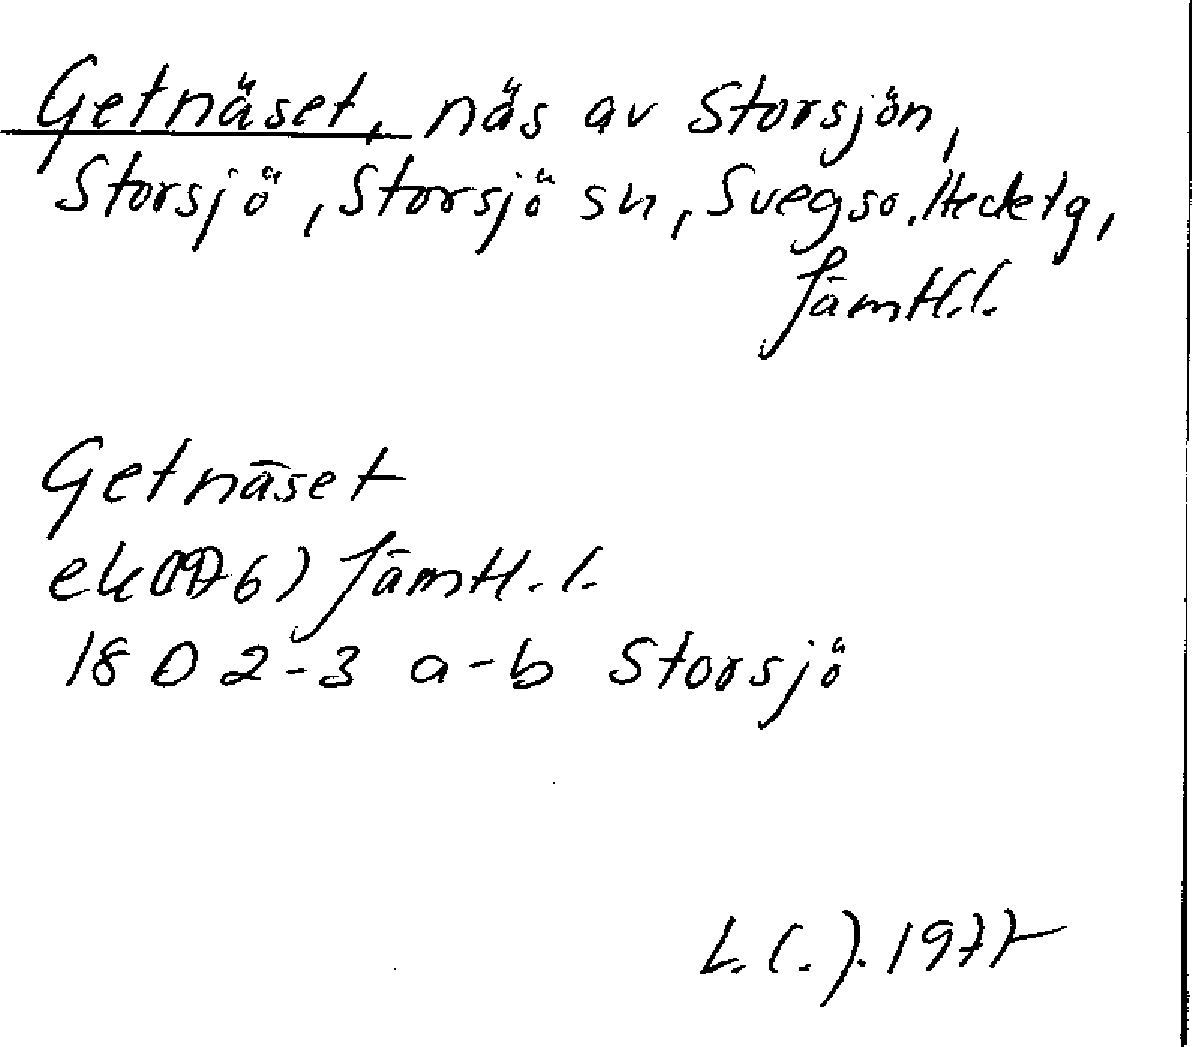 Getnäset, näs av Storsjön,
Storsjö, Storsjö sn, Svegs o. Hede tg,
Jämtl.l.
Getnäset
ek (1976) Jämtl.l.
18 D 2-3 a-b Storsjö
L.C.J. 1977